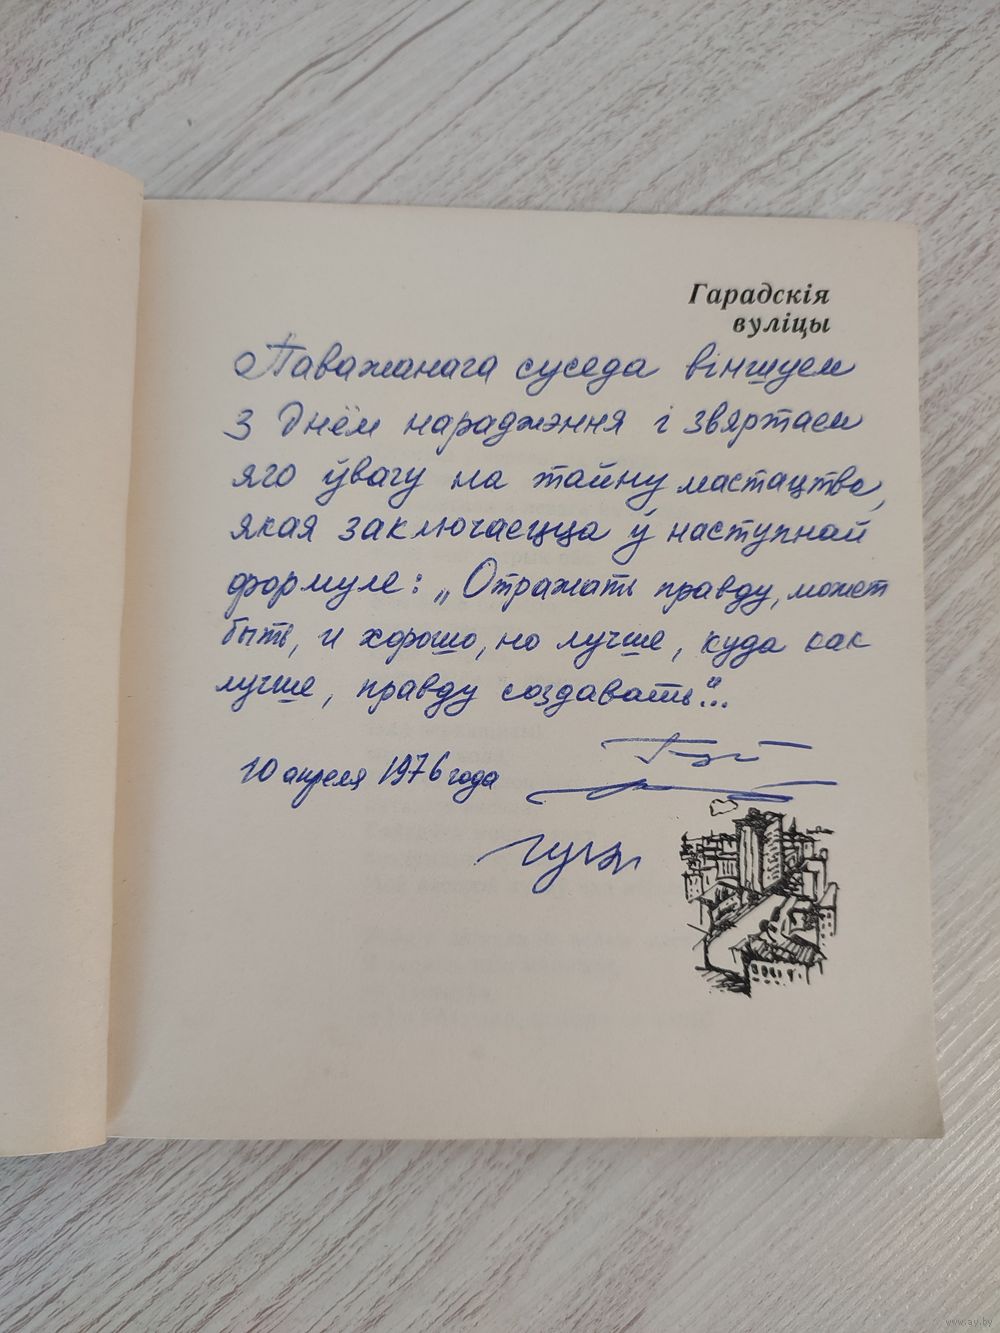 Гарадскія
вуліцы
Паважанага суседа віншуем
з Днём нараджэння і звяртаем
яго ўвагу на тайну мастацтва,
якая заключаецца ў наступнай
формуле: „Отражать правду, может
быть, и хорошо, но лучше, куда как
лучше, правду создавать"...
10 апреля 1976 года
www.ay.by